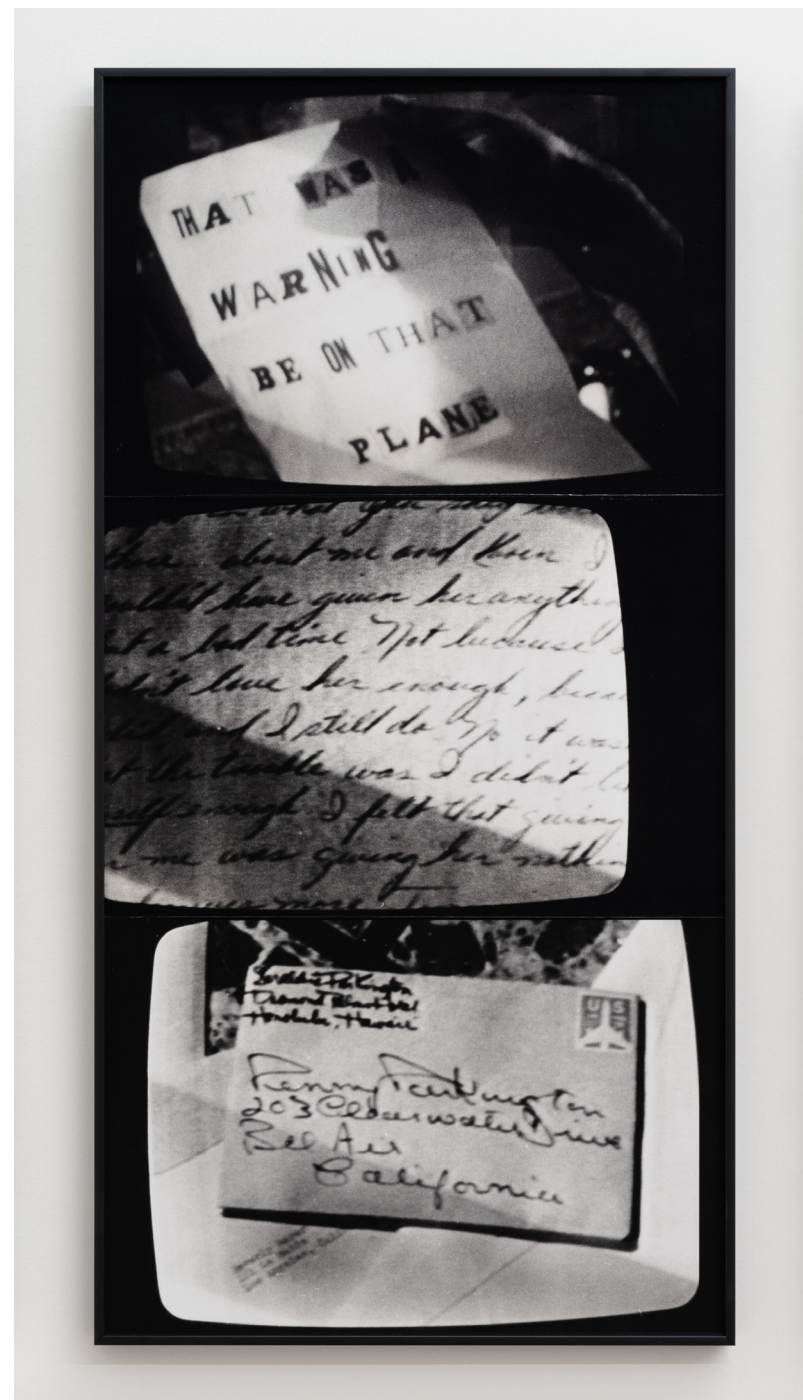 THAT WAS A
WARNING
BE ON THAT
PLANE
what you say
about me and I
have given her anything
a bad time Not because
love her enough, beca
and I still do No it was
the trouble was I didn't
enough I felt that giving
me was giving her nothin
more
Honolulu, Hawaii
Penny Parkington
203 Clearwater Drive
Bel Air
California